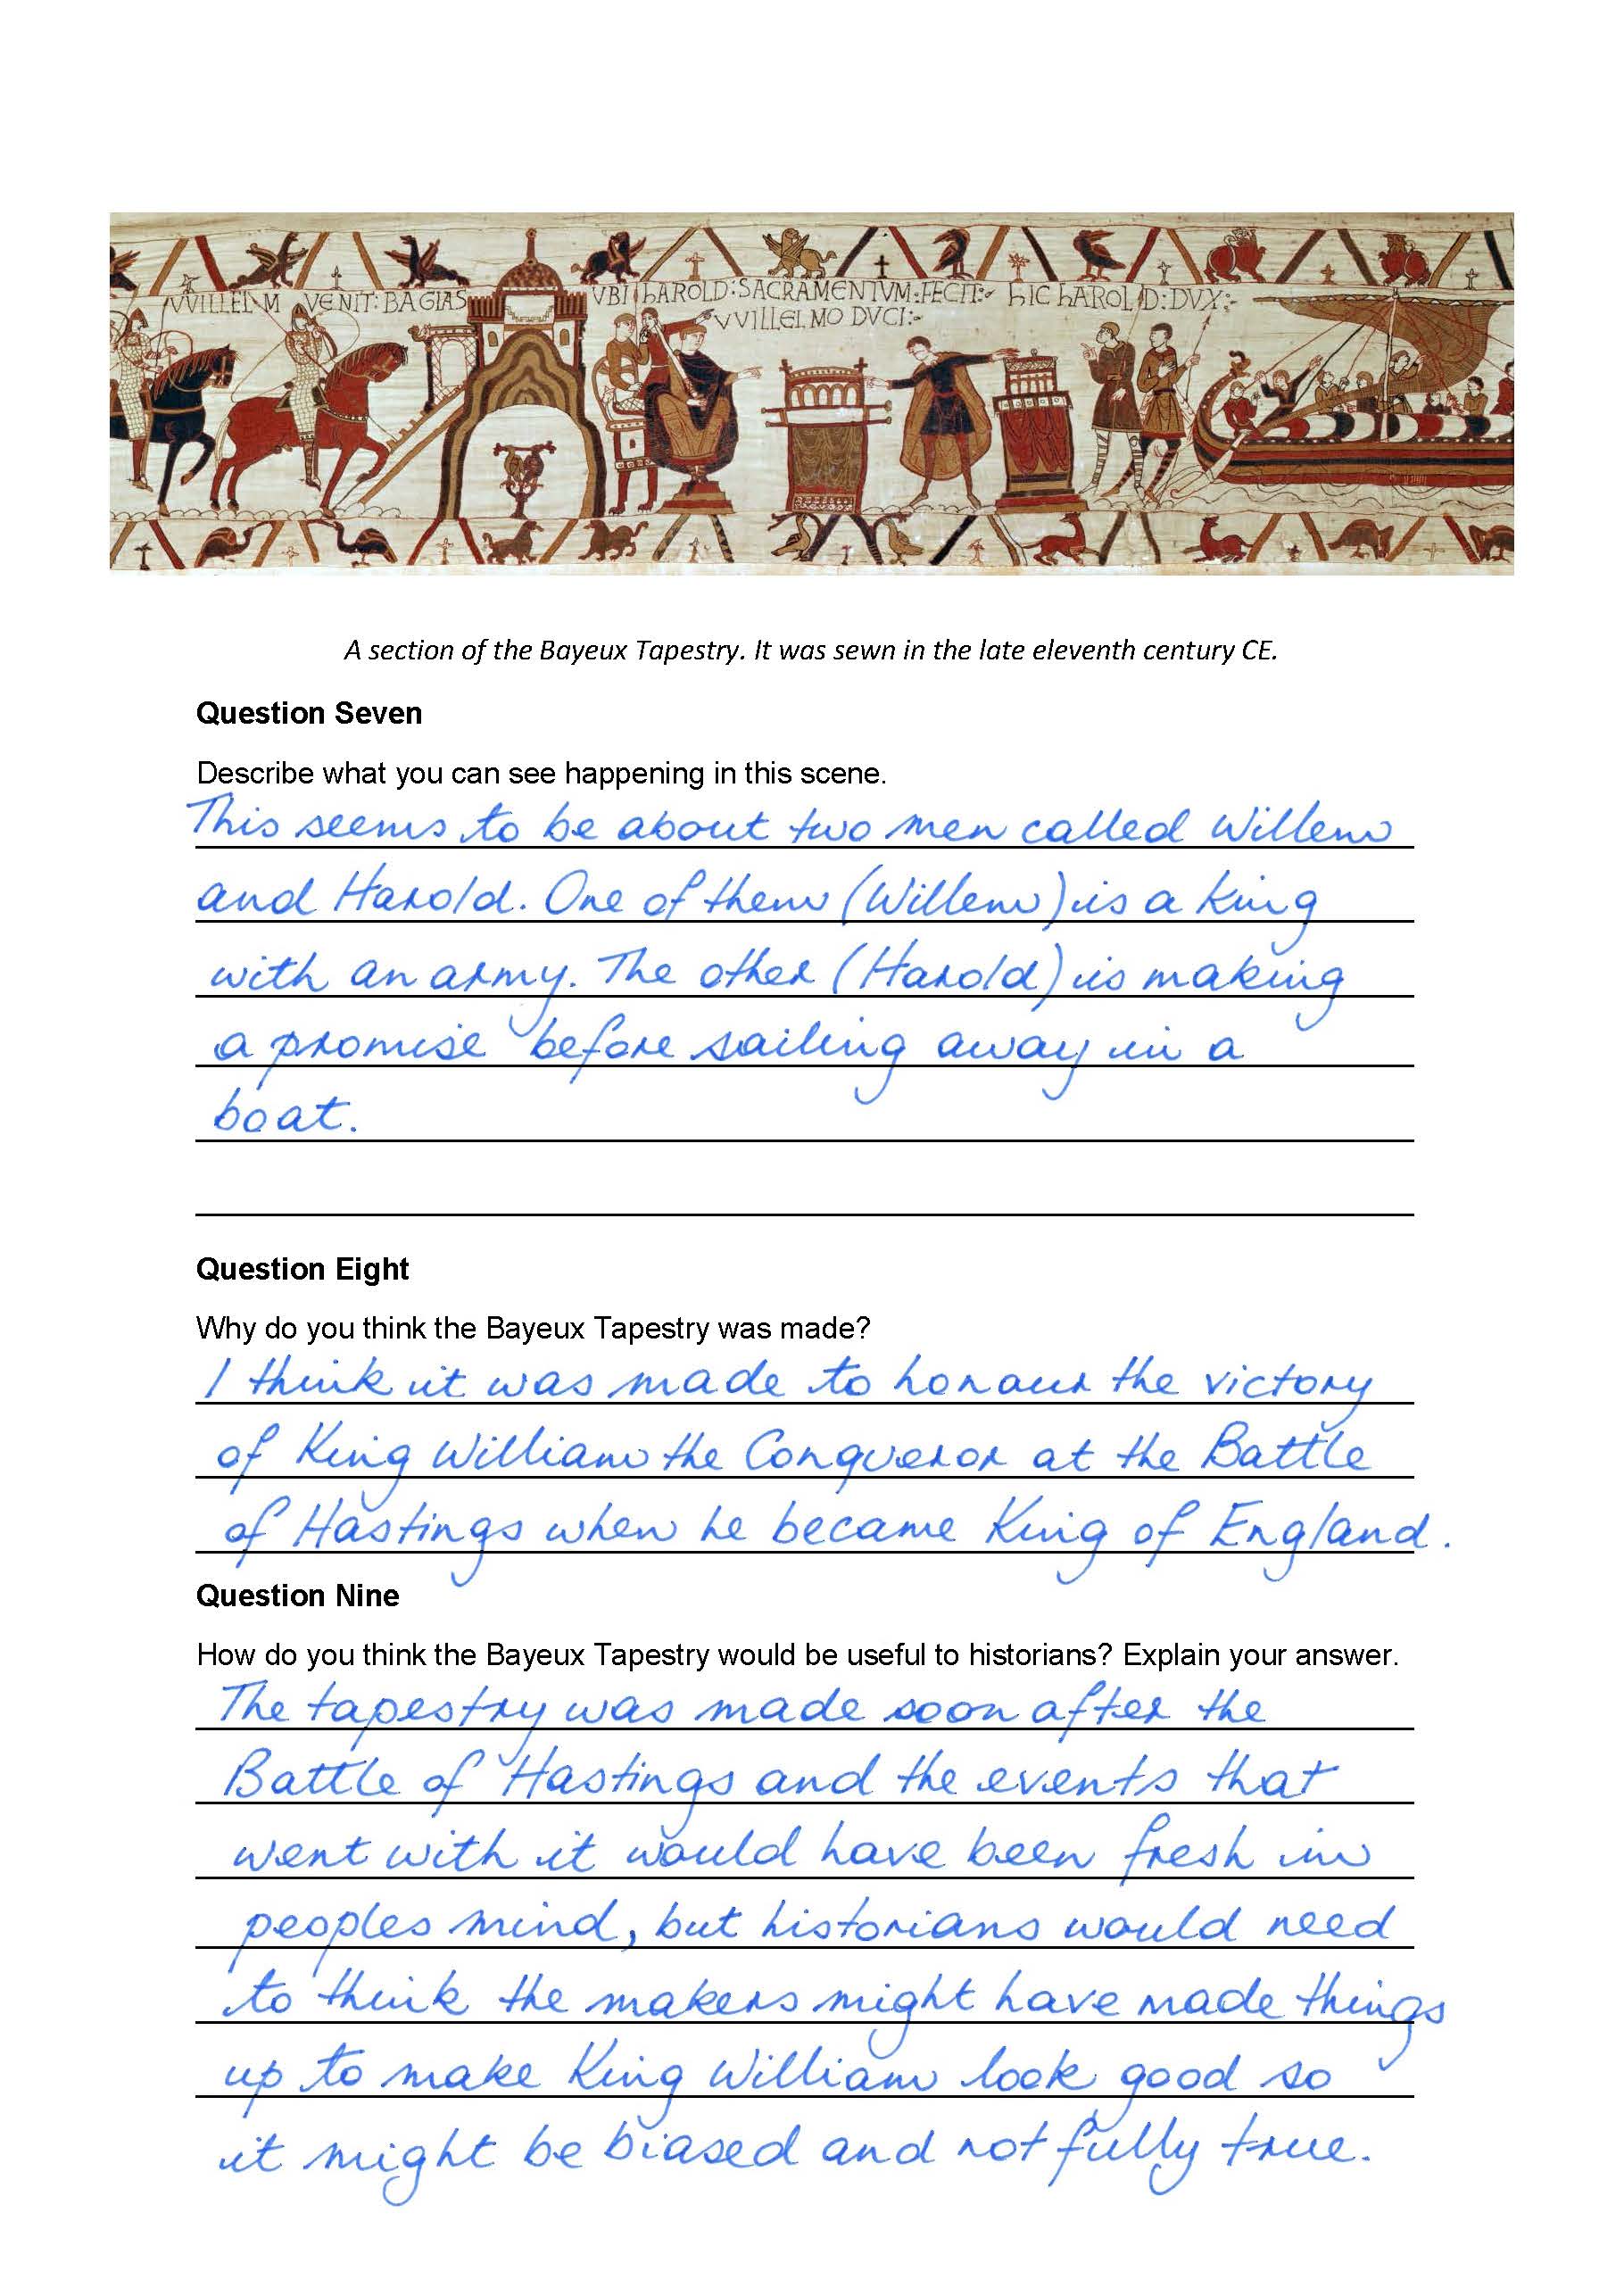 VVILLELM VENIT: BAGIAS
VBI hAROLD: SACRAMENTVM: FECIT:
VVILLELMO DVCI:
hIC hAROLD: DVX:
A section of the Bayeux Tapestry. It was sewn in the late eleventh century CE.
Question Seven
Describe what you can see happening in this scene.
This seems to be about two men called Willem
and Harold. One of them (Willem) is a king
with an army. The other (Harold) is making
a promise before sailing away in a
boat.
Question Eight
Why do you think the Bayeux Tapestry was made?
I think it was made to honour the victory
of King William the Conqueror at the Battle
of Hastings when he became King of England.
Question Nine
How do you think the Bayeux Tapestry would be useful to historians? Explain your answer.
The tapestry was made soon after the
Battle of Hastings and the events that
went with it would have been fresh in
peoples mind, but historians would need
to think the makers might have made things
up to make King William look good so
it might be biased and not fully true.